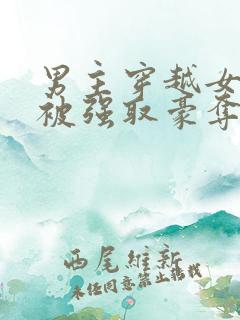 男主穿越女
被强取豪夺
西尾維新
未经同意禁止转载